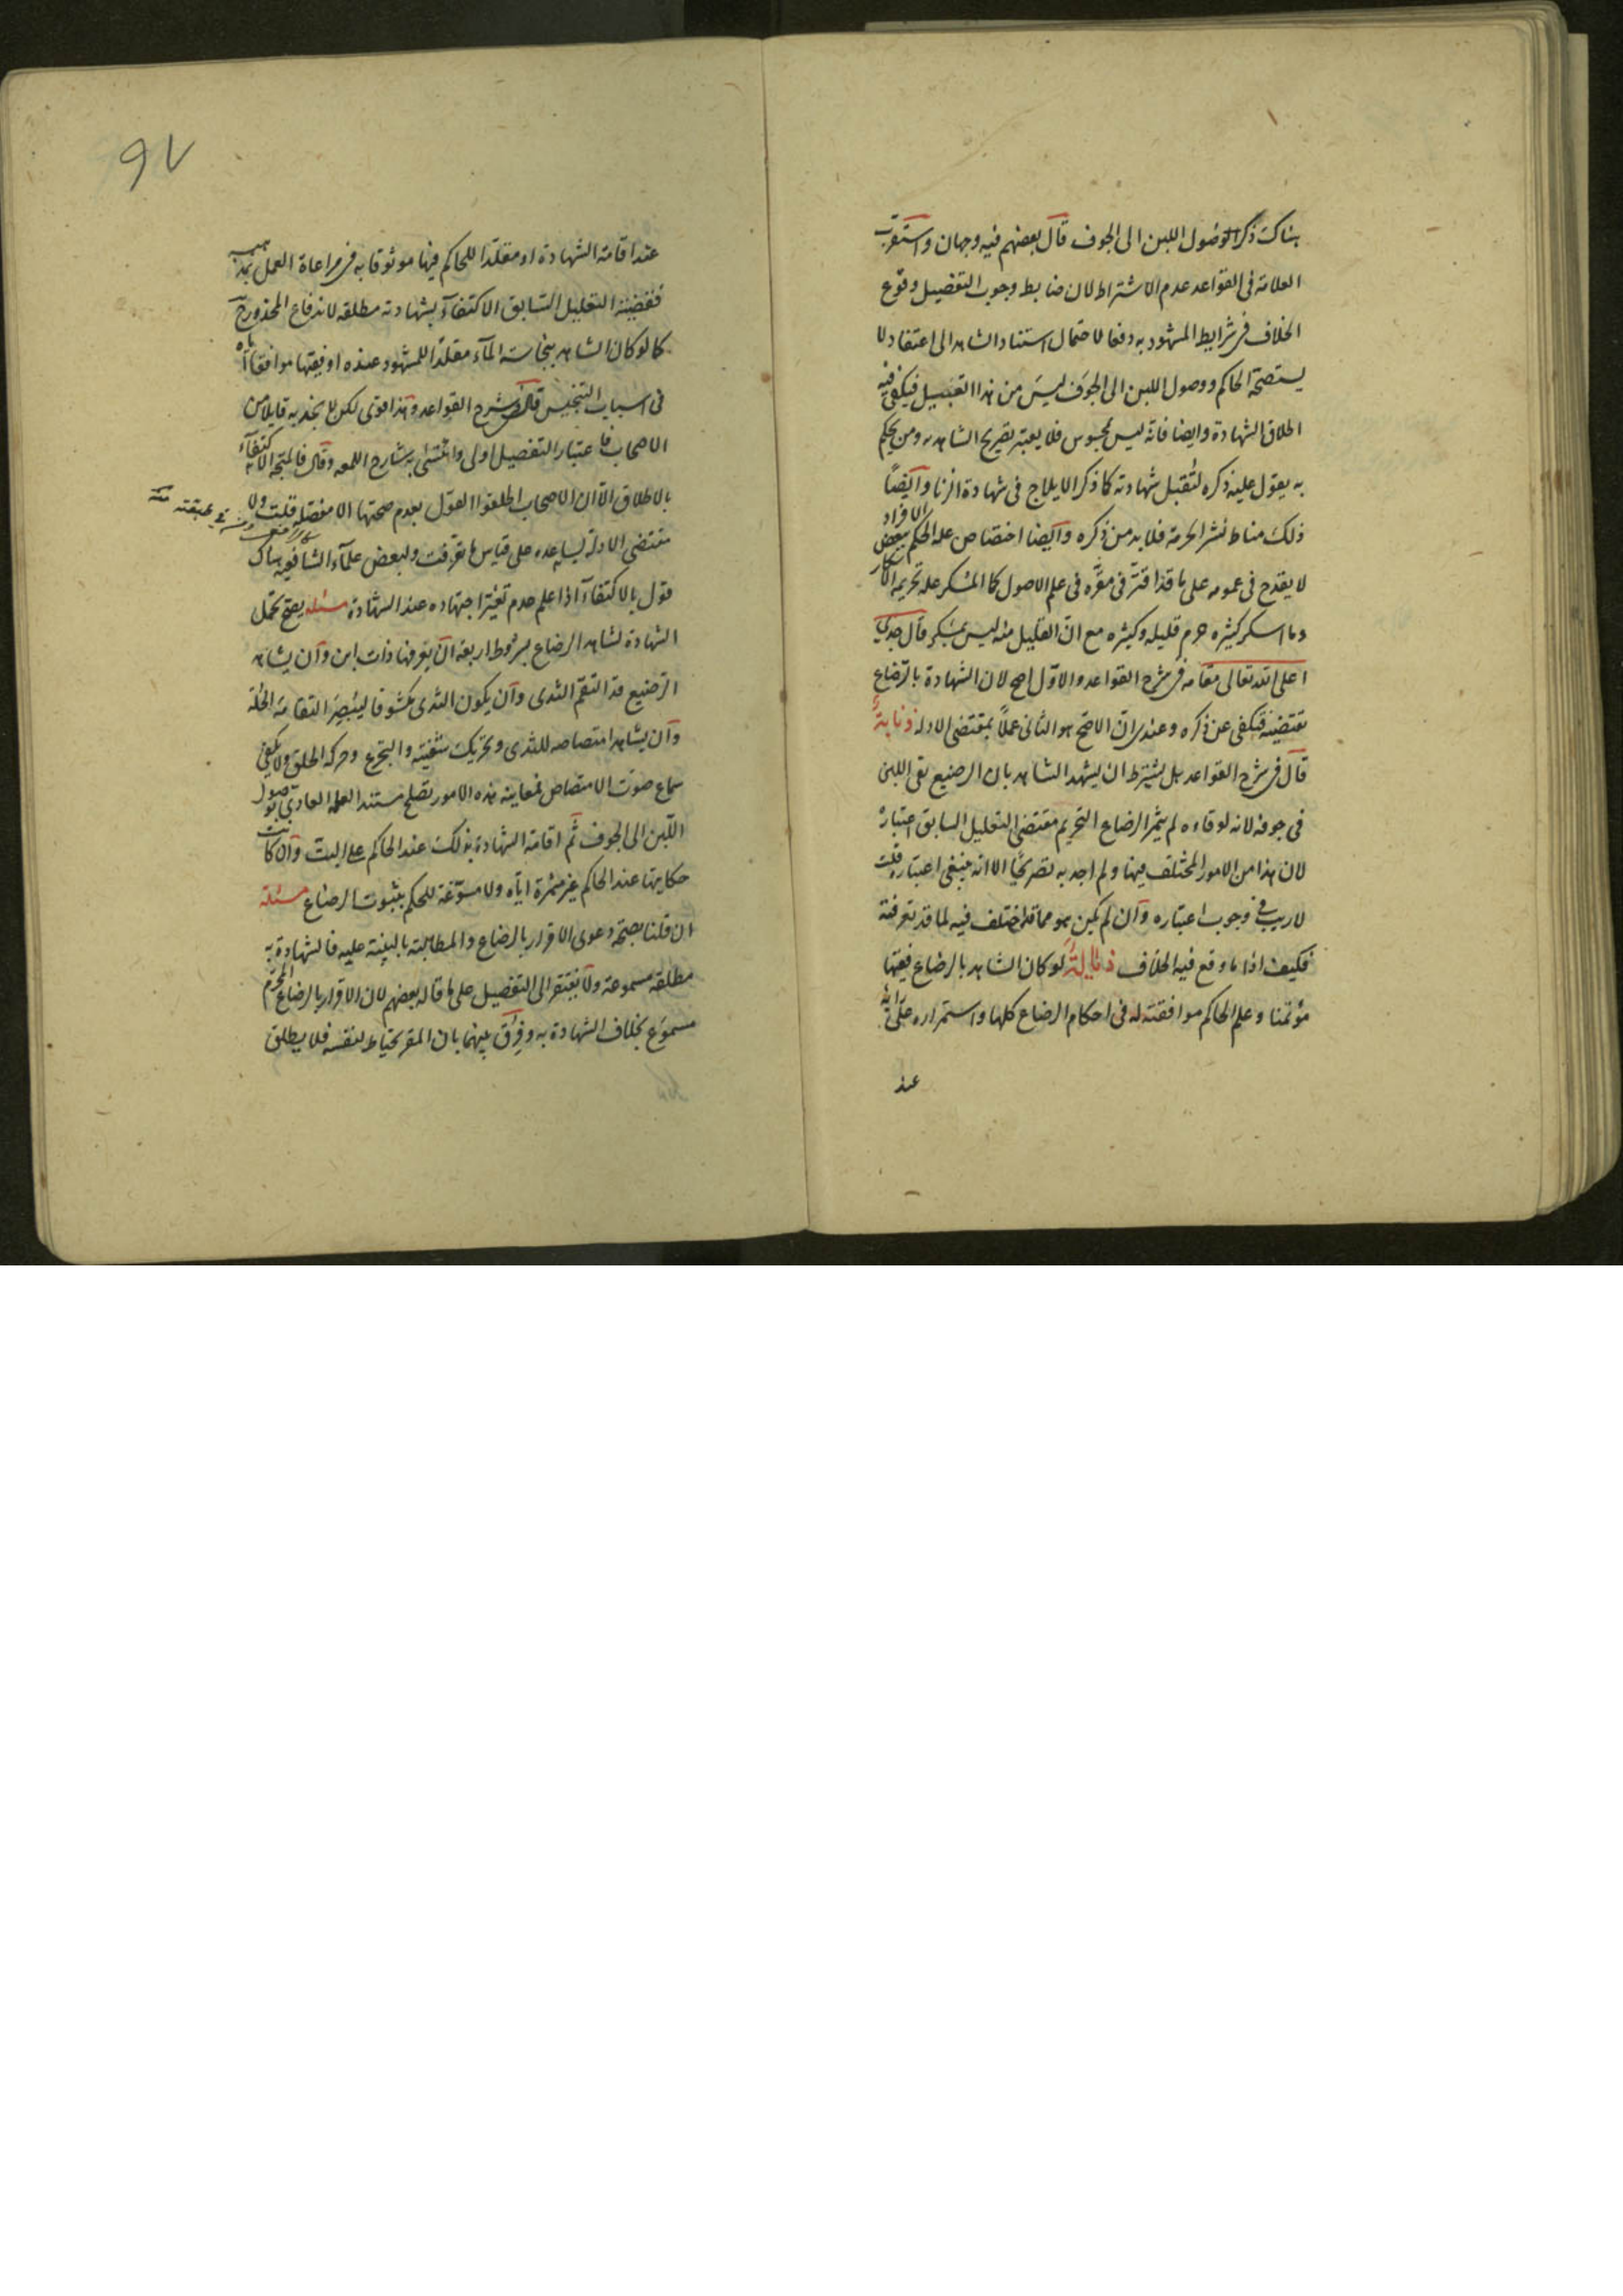 هناك ذكر الوصول اللبن الى الجوف قال بعضهم فيه وجهان واستقرب
العلامة فى القواعد عدم الاشتراط لان ضابط وجوب التفصيل وقوع
الخلاف فى شرايط المشهود به دفعا لاحتمال استناد الشاهد الى اعتقاد لا
يستصحه الحاكم ووصول اللبن الى الجوف ليس من هذا القبيل فيكفى فيه
اطلاق الشهادة وايضا فانه ليس بمحسوس فلا يعتبر تصريح الشاهد به ومن يحكم
به يقول عليه ذكره لتقبل شهادته كما ذكر الايلاج فى شهادة الزنا وايضاً
ذلك مناط نشر الحرمة فلا بد من ذكره وايضا اختصاص علة الحكم ببعض الافراد
لا يقدح فى عمومه على ما قد اقتر فى مقره فى علم الاصول كالمسكر علة تحريمه الاسكار
وما اسكر كثيره حرم قليله وكثيره مع ان القليل منه ليس بمسكر وقال جدي
اعلى الله تعالى مقامه فى شرح القواعد والاول اصح لان الشهادة بالرضاع
تقتضيه فتكفى عن ذكره وعندى ان الاصح هو الثانى عملاً بمقتضى الادلة ذنابة
قال فى شرح القواعد بل يشترط ان يشهد الشاهد بان الرضيع بقى اللبن
فى جوفه لانه لو قاءه لم يثمر الرضاع التحريم مقتضى التعليل السابق اعتباره
لان هذا من الامور المختلف فيها ولم اجد به تصريحًا الا انه ينبغى اعتباره قلت
لا ريب فى وجوب اعتباره وان لم يكن هو مما قد اختلف فيه لما قد تعرفته
فكيف اذا ما وقع فيه الخلاف ذنابة لو كان الشاهد بالرضاع فقيها
مؤتمنا وعلم الحاكم موافقته له فى احكام الرضاع كلها واستمراره على رايه
عند
97
عند اقامة الشهادة او مقلدا للحاكم فيها موثوقا به فى مراعاة العمل بمذهبه
فقضية التعليل السابق الاكتفاء بشهادته مطلقه لاندفاع المحذور ح
كما لو كان الشاهد بنجاسة الماء مقلدا للمشهود عنده او فقيها موافقا اياه
فى اسباب التنجيس قال فى شرح القواعد وهذا قوى لكن لا نجد به قايلا من
الاصحاب فاعتبار التفصيل اولى واقتفى به شارح اللمعه وقال فالمتجه الاكتفاء
بالاطلاق الا ان الاصحاب اطلقوا القول بعدم صحتها الا مفصله قلت ولا
مقتضى الادلة يساعده على قياس ما عرفت ولبعض علماء الشافعية هناك
قول بالاكتفاء اذا علم عدم تغير اجتهاده عند الشهادة مسئله يصح تحمل
الشهادة لشاهد الرضاع بشروط اربعة ان يعرفها ذات لبن وان يشاهد
الرضيع قد التقم الثدى وان يكون الثدى مكشوفا ليبصر التقامه الحلمة
وان يشاهد امتصاصه للثدى وتحريك شفتيه والتجرع وحركة الحلق ولا يكفى
سماع صوت الامتصاص فمعاينة هذه الامور تصلح مستند العلم العادى بوصول
اللبن الى الجوف ثم اقامة الشهادة بذلك عند الحاكم على البت وان كانت
حكايتها عند الحاكم غير مثمرة اياه ولا مسوغة للحكم بثبوت الرضاع مسئلة
ان قلنا بصحة دعوى الاقرار بالرضاع والمطالبة بالبينة عليه فالشهادة به
مطلقة مسموعة ولا يفتقر الى التفصيل على ما قاله بعضهم لان الاقرار بالرضاع المحرم
مسموع بخلاف الشهادة به وفرق بينهما بان المقر يحتاط لنفسه فلا يطلق